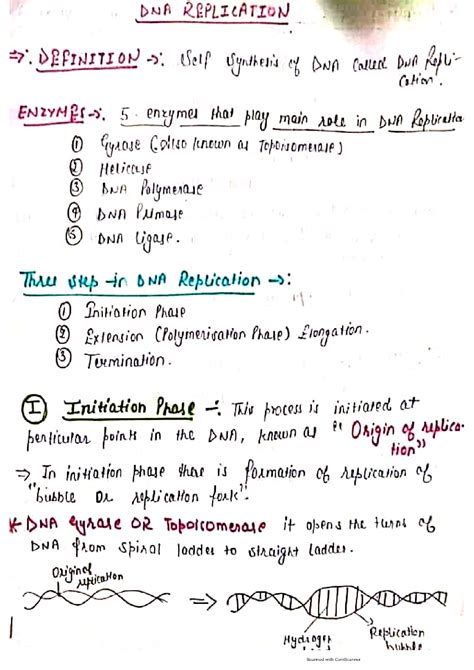 DNA REPLICATION
⇒ : DEFINITION → : Self synthesis of DNA called DNA Repli-
cation.
ENZYMES → : 5 enzymes that play main role in DNA Replication
① Gyrase (also known as Topoisomerase)
② Helicase
③ DNA Polymerase
④ DNA Primase
⑤ DNA ligase.
Three step in DNA Replication → :
① Initiation Phase
② Extension (Polymerisation Phase) Elongation.
③ Termination.
Ⓘ Initiation Phase - : This process is initiated at
perticular points in the DNA, known as "Origin of replica-
tion"
⇒ In initiation phase there is formation of replication of
"bubble or replication fork".
* DNA Gyrase OR Topoisomerase it opens the turns of
DNA from spiral ladder to straight ladder.
Origin of
replication
⇒
Hydrogen
Replication
bubble.
Scanned with CamScanner